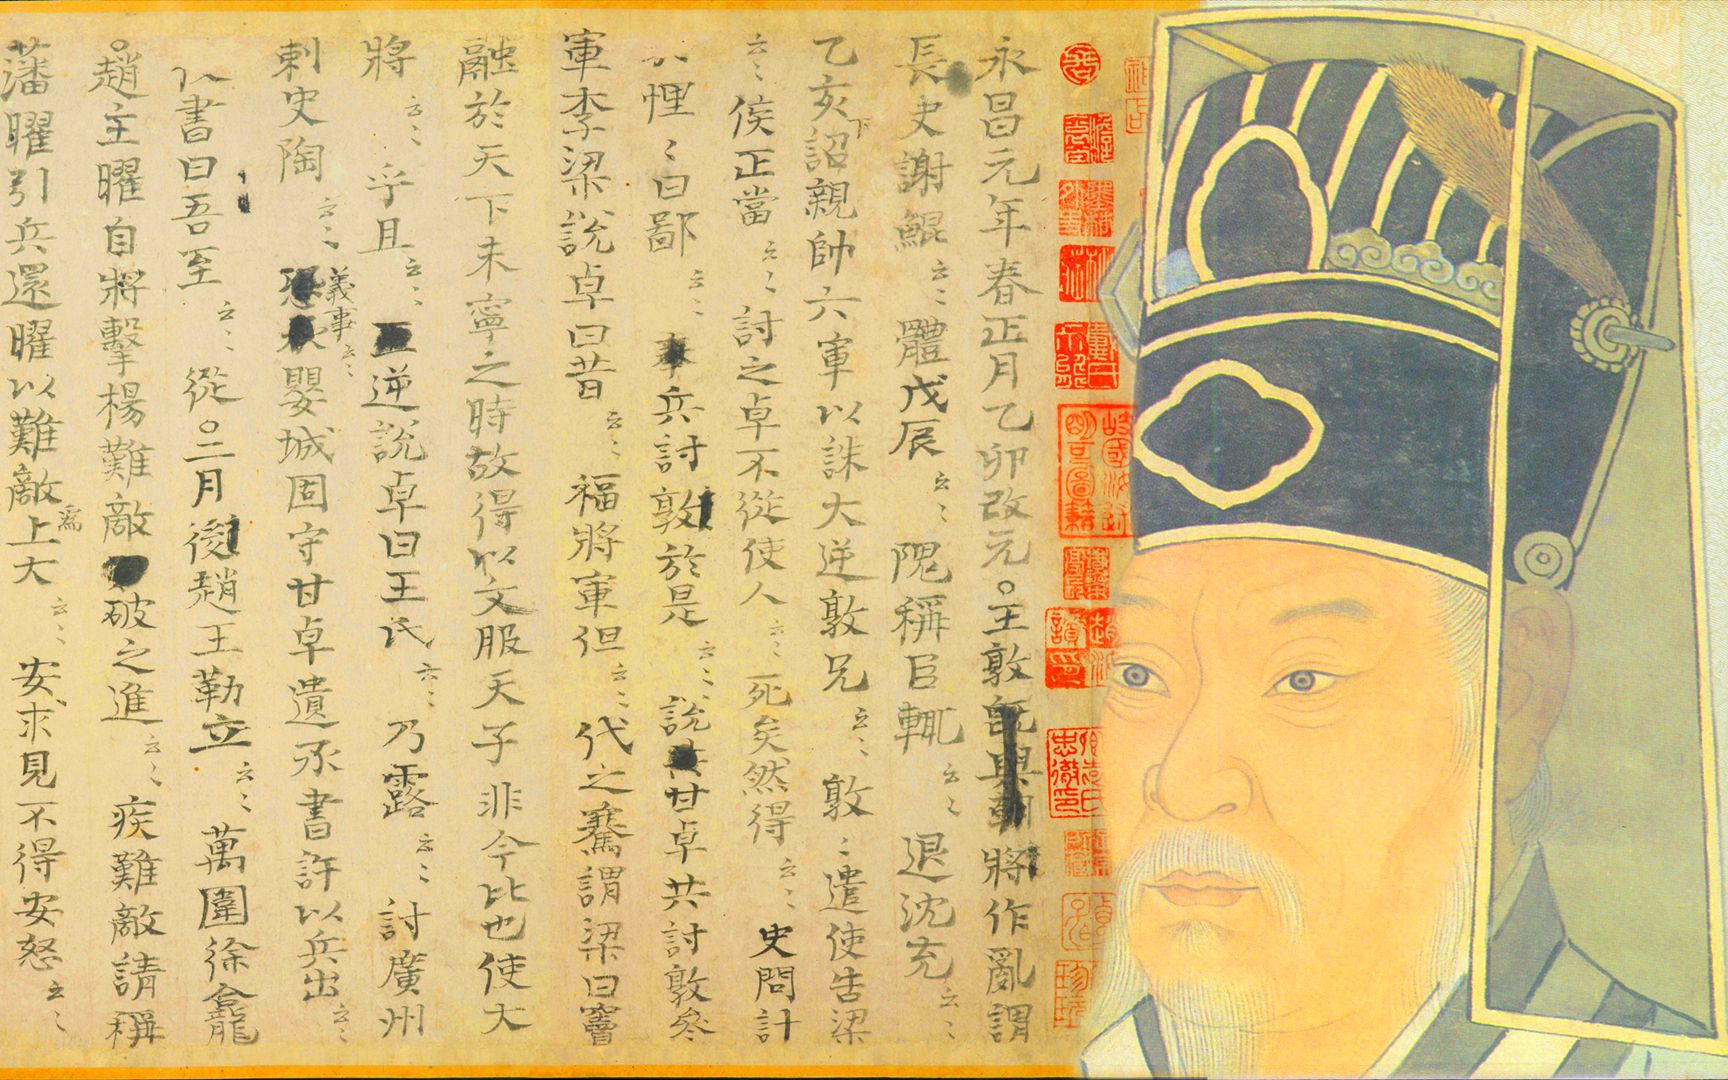 永昌元年春正月乙卯改元。王敦既與朝將作亂謂
長史謝鯤云〻體戊辰云〻隗稱臣輒云〻退沈充云〻
乙亥詔親帥六軍以誅大逆敦兄云〻敦〻遣使告梁
云〻侯正當云〻討之卓不從使人云〻死矣然得云〻史問計
悝〻曰鄙云〻兵討敦於是云〻說甘卓共討敦參
軍李梁說卓曰昔云〻福將軍但云〻代之騫謂梁曰竇
融於天下未寧之時故得以文服天子非今比也使大
將云〻乎且云〻逆說卓曰王氏云〻乃露云〻討廣州
刺史陶云〻義事云〻嬰城固守甘卓遺承書許以兵出云〻
以書曰吾至云〻從。二月後趙王勒立云〻萬圍徐龕
。趙主曜自將擊楊難敵破之進云〻疾難敵請稱
藩曜引兵還曜以難敵為上大云〻安求見不得安怒云〻